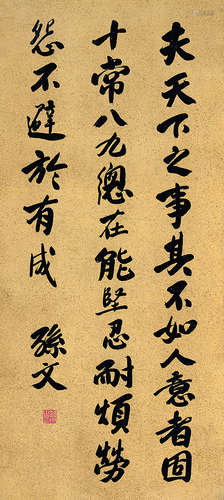 夫天下之事其不如人意者固
十常八九總在能堅忍耐煩勞
怨不避於有成
孫文